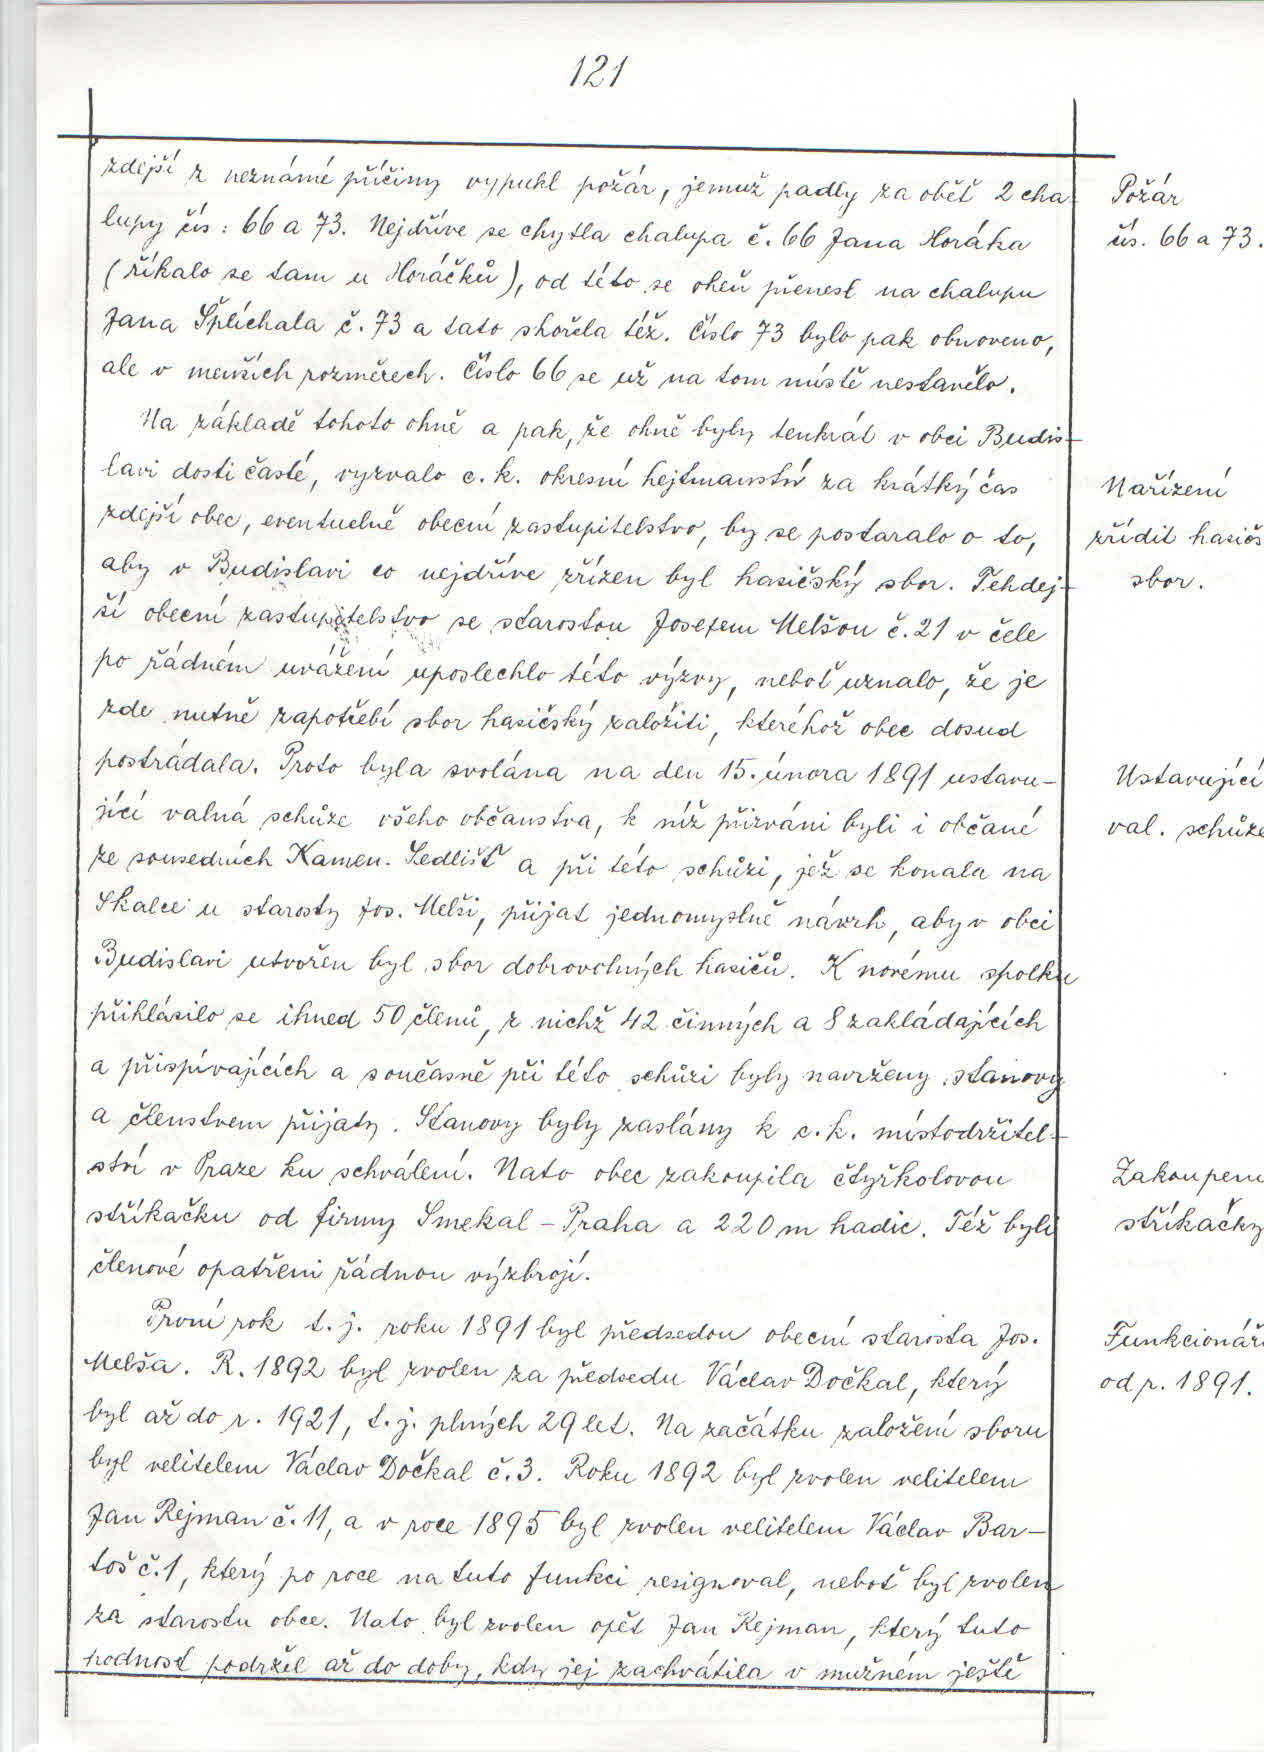 121
zdejší z neznámé příčiny vypukl požár, jemuž padly za oběť 2 cha-
lupy čís: 66 a 73. Nejdříve se chytla chalupa č. 66 Jana Horáka
(říkalo se tam u Horáčků), od této se oheň přenesl na chalupu
Jana Šplíchala č. 73 a tato shořela též. Číslo 73 bylo pak obnoveno,
ale v menších rozměrech. Číslo 66 se už na tom místě nestavělo.
Na základě tohoto ohně a pak, že ohně byly tenkrát v obci Budis-
lavi dosti časté, vyzvalo c. k. okresní hejtmanství za krátký čas
zdejší obec, eventuelně obecní zastupitelstvo, by se postaralo o to,
aby v Budislavi co nejdříve zřízen byl hasičský sbor. Tehdej-
ší obecní zastupitelstvo se starostou Josefem Melšou č. 21 v čele
po řádném uvážení uposlechlo této výzvy, neboť uznalo, že je
zde nutně zapotřebí sbor hasičský založiti, kteréhož obec dosud
postrádala. Proto byla svolána na den 15. února 1891 ustavu-
jící valná schůze všeho občanstva, k níž přizváni byli i občané
ze sousedních Kamen. Sedlišť a při této schůzi, jež se konala na
Skalce u starosty Jos. Melši, přijat jednomyslně návrh, aby v obci
Budislavi utvořen byl sbor dobrovolných hasičů. K novému spolku
přihlásilo se ihned 50 členů, z nichž 42 činných a 8 zakládajících
a přispívajících a současně při této schůzi byly navrženy stanovy
a členstvem přijaty. Stanovy byly zaslány k c. k. místodržitel-
ství v Praze ku schválení. Nato obec zakoupila čtyřkolovou
stříkačku od firmy Smekal - Praha a 220 m hadic. Též byli
členové opatřeni řádnou výzbrojí.
První rok t. j. roku 1891 byl předsedou obecní starosta Jos.
Melša. R. 1892 byl zvolen za předsedu Václav Dočkal, který
byl až do r. 1921, t. j. plných 29 let. Na začátku založení sboru
byl velitelem Václav Dočkal č. 3. Roku 1892 byl zvolen velitelem
Jan Rejman č. 11, a v roce 1895 byl zvolen velitelem Václav Bar-
toš č. 1, který po roce na tuto funkci resignoval, neboť byl zvolen
za starostu obce. Nato byl zvolen opět Jan Rejman, který tuto
hodnost podržel až do doby, kdy jej zachvátila v mužném ještě
Požár
čís. 66 a 73.
Nařízení
zřídit hasičs
sbor.
Ustavující
val. schůze
Zakoupení
stříkačky
Funkcionáři
od r. 1891.